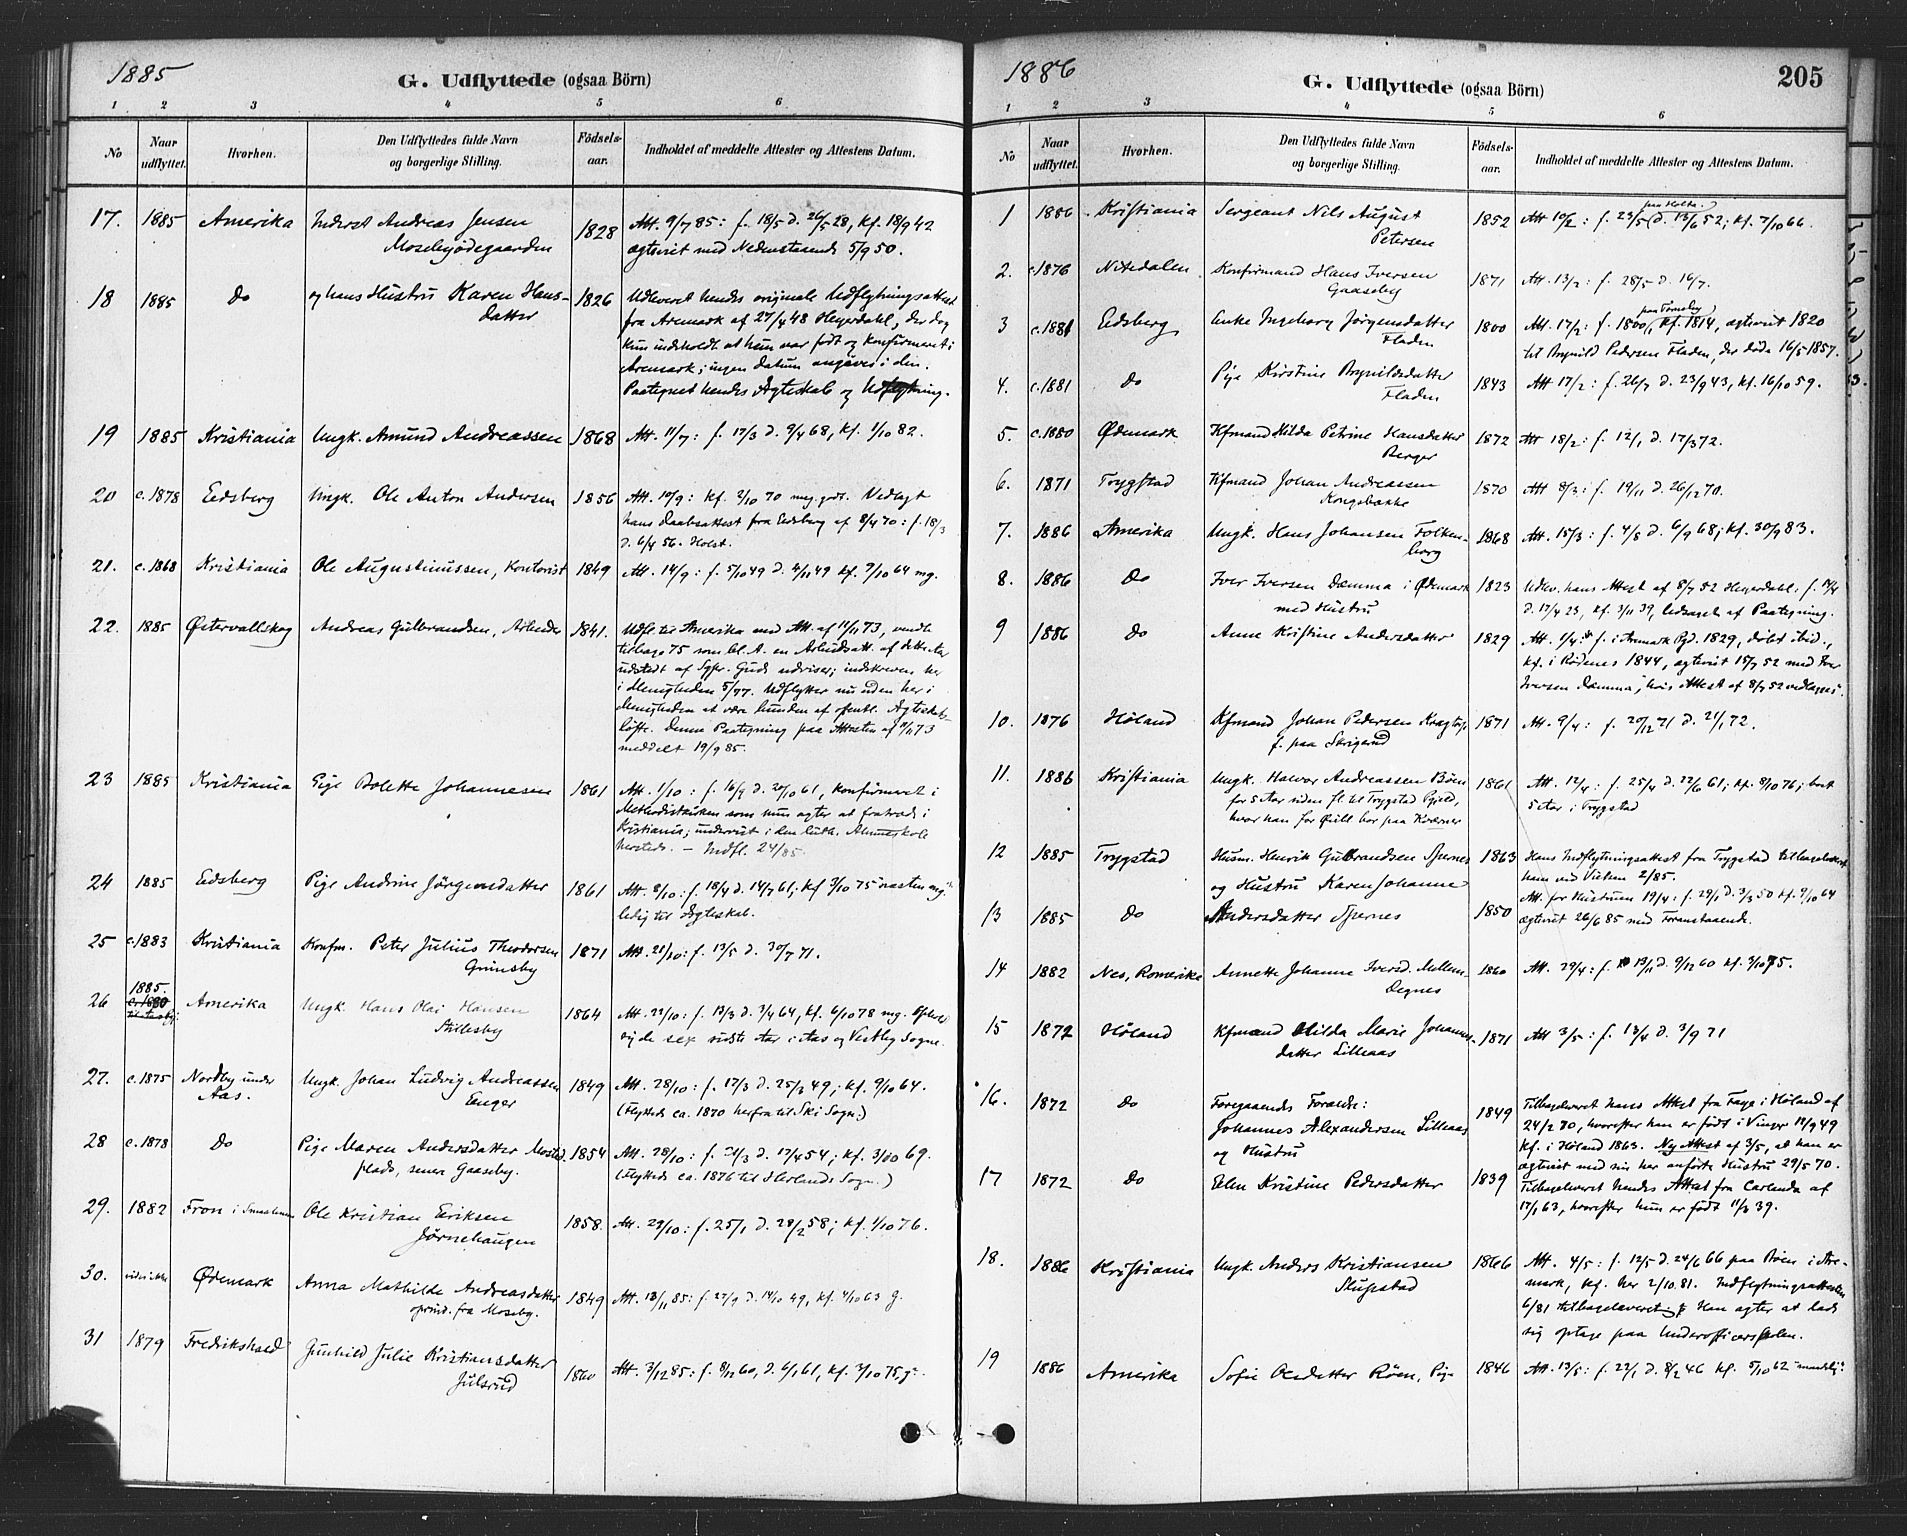 1885
G. Udflyttede (ogsaa Börn)
1 2 3 4 5 6
No
Naar udflyttet.
Hvorhen.
Den Udflyttedes fulde Navn og borgerlige Stilling.
Födsels-aar.
Indholdet af meddelte Attester og Attestens Datum.
17. 1885 Amerika Inderst Andreas Jensen 1828 Att. 9/7 85: f. 18/5 d. 26/5 28, kf. 18/9 42
Mosebyødegaarden ægteviet med Nedenstaaende 5/9 50.
18 1885 do og hans Hustru Karen Hans- 1826 Udleveret hendes originale Udflytningsattest
datter fra Aremark af 27/4 48 Heyerdahl, der dog
kun indholdt at hun var født og konfirmeret i
Aremark; ingen datum angives i den.
Paategnet hendes Ægteskab og Udflytning.
19 1885 Kristiania Ungk. Amund Andreassen 1868 Att. 11/7: f. 17/3 d. 9/4 68, kf. 1/10 82.
20 c. 1878 Eidsberg Ungk. Ole Anton Andersen 1856 Att. 10/9: kf. 2/10 70 meg. godt. Vedlagt
hans Daabsattest fra Eidsberg af 8/4 70: f. 18/3
d. 6/4 56. Holst.
21. c. 1868 Kristiania Ole Augustinussen, Kontorist 1849 Att. 14/9: f. 5/10 49 d. 4/11 49 kf. 2/10 64 mg.
22. 1885 Østervallskog Andreas Gulbrandsen, Arbeider 1841. Udfl. til Amerika med Att. af 11/11 73, vendte
tilbage 75 som bl. A. en Arbeidsatt. af dette Aar
udstedt af Sgpr. Guds udviser; indskreven her
i Menigheden 5/77. Udflytter nu uden her i
Menigheden at være bunden af ofentl. Ægteskabs-
løfte. Denne Paategning paa Attesten af 11/11 73
meddelt 19/9 85.
23 1885 Kristiania Pige Bolette Johannesen 1861 Att. 1/10: f. 16/9 d. 20/10 61, konfirmeret i
Methodistkirken som hun agter at fratræde i
Kristiania; undervist i den luth. Almueskole
hersteds. - Indfl. 24/85.
24 1885 Eidsberg Pige Andrine Jörgensdatter 1861 Att. 8/10: f. 18/4 d. 14/7 61; kf 3/10 75 "næsten mg."
ledig til Ægteskab.
25 c. 1883 Kristiania Konfm. Peter Julius Theodorsen 1871 Att. 21/10: f. 13/5 d. 30/7 71.
Grimsby
26 1885. Amerika Ungk. Hans Olai Hansen 1864 Att. 22/10: f. 13/3 d. 3/4 64, kf. 6/10 78 mg. Ophold
c. 1880 Stillesby sig de sex sidste Aar i Aas og Vestby Sogne.
27. c. 1875 Nordby under Ungk. Johan Ludvig Andreassen 1849 Att. 28/10: f. 17/3 d. 25/3 49; kf. 9/10 64.
Aas. Enger (Flyttede ca. 1870 herfra til Ski Sogn.)
28 c. 1878 Do Pige Maren Andersdatter 1854 Att. 28/10: f. 21/3 d. 17/4 54; kf. 3/10 69.
plads, senere Gaaseby. (Flyttede ca. 1876 til Herlands Sogn.)
29. 1882 Tron i Smaalenene Ole Kristian Eriksen 1858. Att. 29/10: f. 25/1 d. 28/2 58; kf. 1/10 76.
Jørnehaugen
30. Ødemark Anna Mathilde Andreasdatter 1849 Att. 13/11 85: f. 27/9 d. 14/10 49, kf. 4/10 63 g.
oprind. fra Moseby.
31 1879 Fredrikshald Gunhild Julie Kristiansdatter 1860 Att. 3/12 85: f. 8/12 60, d. 6/1 61, kf. 3/10 75, g.
Julsrud
1886
G. Udflyttede (ogsaa Börn)
205
1 2 3 4 5 6
No
Naar udflyttet.
Hvorhen.
Den Udflyttedes fulde Navn og borgerlige Stilling.
Födsels-aar.
Indholdet af meddelte Attester og Attestens Datum.
1 1886 Kristiania Sergeant Nils August 1852 Att 10/2: f. 23/5 (paa Holte.) d. 13/6 52; kf. 7/10 66.
Petersen
2. c. 1876 Nitedalen Konfirmand Hans Iversen 1871 Att. 13/2: f. 28/5 d. 16/7.
Gaaseby
3 c. 1881 Eidsberg Enke Ingeborg Jørgensdatter 1800 Att. 17/2: f. 1800, kf. 1814, ægteviet 1820
Fladen til Brynild Pedersen Fladen, der døde 16/5 1857.
4. c. 1881 Do Pige Kirstine Brynildsdatter 1843 Att 17/2: f. 26/7 d. 23/9 43, kf. 16/10 59.
Fladen
5. c. 1880 Ødemark Kfmand Hilda Petrine Hansdatter 1872 Att 18/2: f. 12/1 d. 17/3 72.
Berger
6. 1871 Trygstad Kfmand Johan Andreassen 1870 Att 8/3: f. 19/11 d. 26/12 70.
Kongsbakke
7. 1886 Amerika Ungk. Hans Johansen Folken- 1868 Att. 15/3: f. 4/8 d. 6/9 68; kf. 30/9 83.
borg
8. 1886 Do Iver Iversen Dæmma i Ødemark 1823 Udlev. hans Attest af 8/7 52 Heyerdahl: f. 14/4
med Hustru d. 17/4 23, kf. 3/11 39, ledsaget af Paategning.
9 1886 Do Anne Kristine Andersdatter 1829 Att. 1/4: f. i Aremark Pgd. 1829, døbt ibid.,
kf. i Rødenes 1844, ægteviet 15/7 52 med Iver
Iversen Dæmma, hvis Attest af 8/7 52 vedlagges.
10. 1876 Høland Kfmand Johan Pedersen 1871 Att. 9/4: f. 20/12 71 d. 21/1 72.
f. paa
11. 1886 Kristiania Ungk. Halvor Andreassen Böen 1861 Att. 12/4: f. 25/4 d. 22/6 61; kf. 8/10 76; boet
for 5 Aar siden fl. til Trygstad Pgjeld, 5 Aar i Trygstad
hvor han for Øiebl. bor paa Kværner
12 1885 Trygstad Husm. Henrik Gulbrandsen Spernes 1863 Hans Indflytningsattest fra Trygstad tilbageleveret
og Hustru Karen Johanne ham ved Vielsen 2/85.
13 1885 Do Andersdatter Spernes 1850 Att. for Hustruen 19/4: f. 29/1 d. 3/3 50 kf. 9/10 64
ægteviet 26/6 85 med Foranstaaende.
14 1882 Nes, Romerike Annette Johanne Iversd. Mellem- 1860 Att. 29/4: f. 13/11 d. 9/12 60 kf. 3/10 75.
Degnes
15 1872 Høland Kfmand Hilda Marie Johannes- 1871 Att 3/5: f. 13/4 d. 3/9 71
datter Lilleaas
16. 1872 Do Foregaaendes Forældre: 1849 Tilbageleveret hans Attest fra Faye i Høland af
Johannes Alexandersen Lilleaas 24/2 70, hvorefter han er født i Vinger 11/9 49
og Hustru kf. i Høland 1863. Ny Attest af 3/5, at han er
ægteviet med sin her anførte Hustru 29/5 70.
17 1872 Do Elen Kristine Pedersdatter 1839 Tilbageleveret hendes Attest fra Carlanda af
17/1 63, hvorefter hun er født 11/3 39.
18. 1886 Kristiania Ungk. Anders Kristiansen 1866 Att. 4/5: f. 12/5 d. 24/6 66 paa Böen i Are-
Slupstad mark, kf. her 2/10 81. Indflytningsattesten
6/81 tilbageleveret. Han agter at lade
sig optage paa Underofficersskolen.
19 1886 Amerika Sofie Olsdatter Röen, Pige 1846 Att. 13/5: f. 22/1 d. 8/2 46 kf. 5/10 62